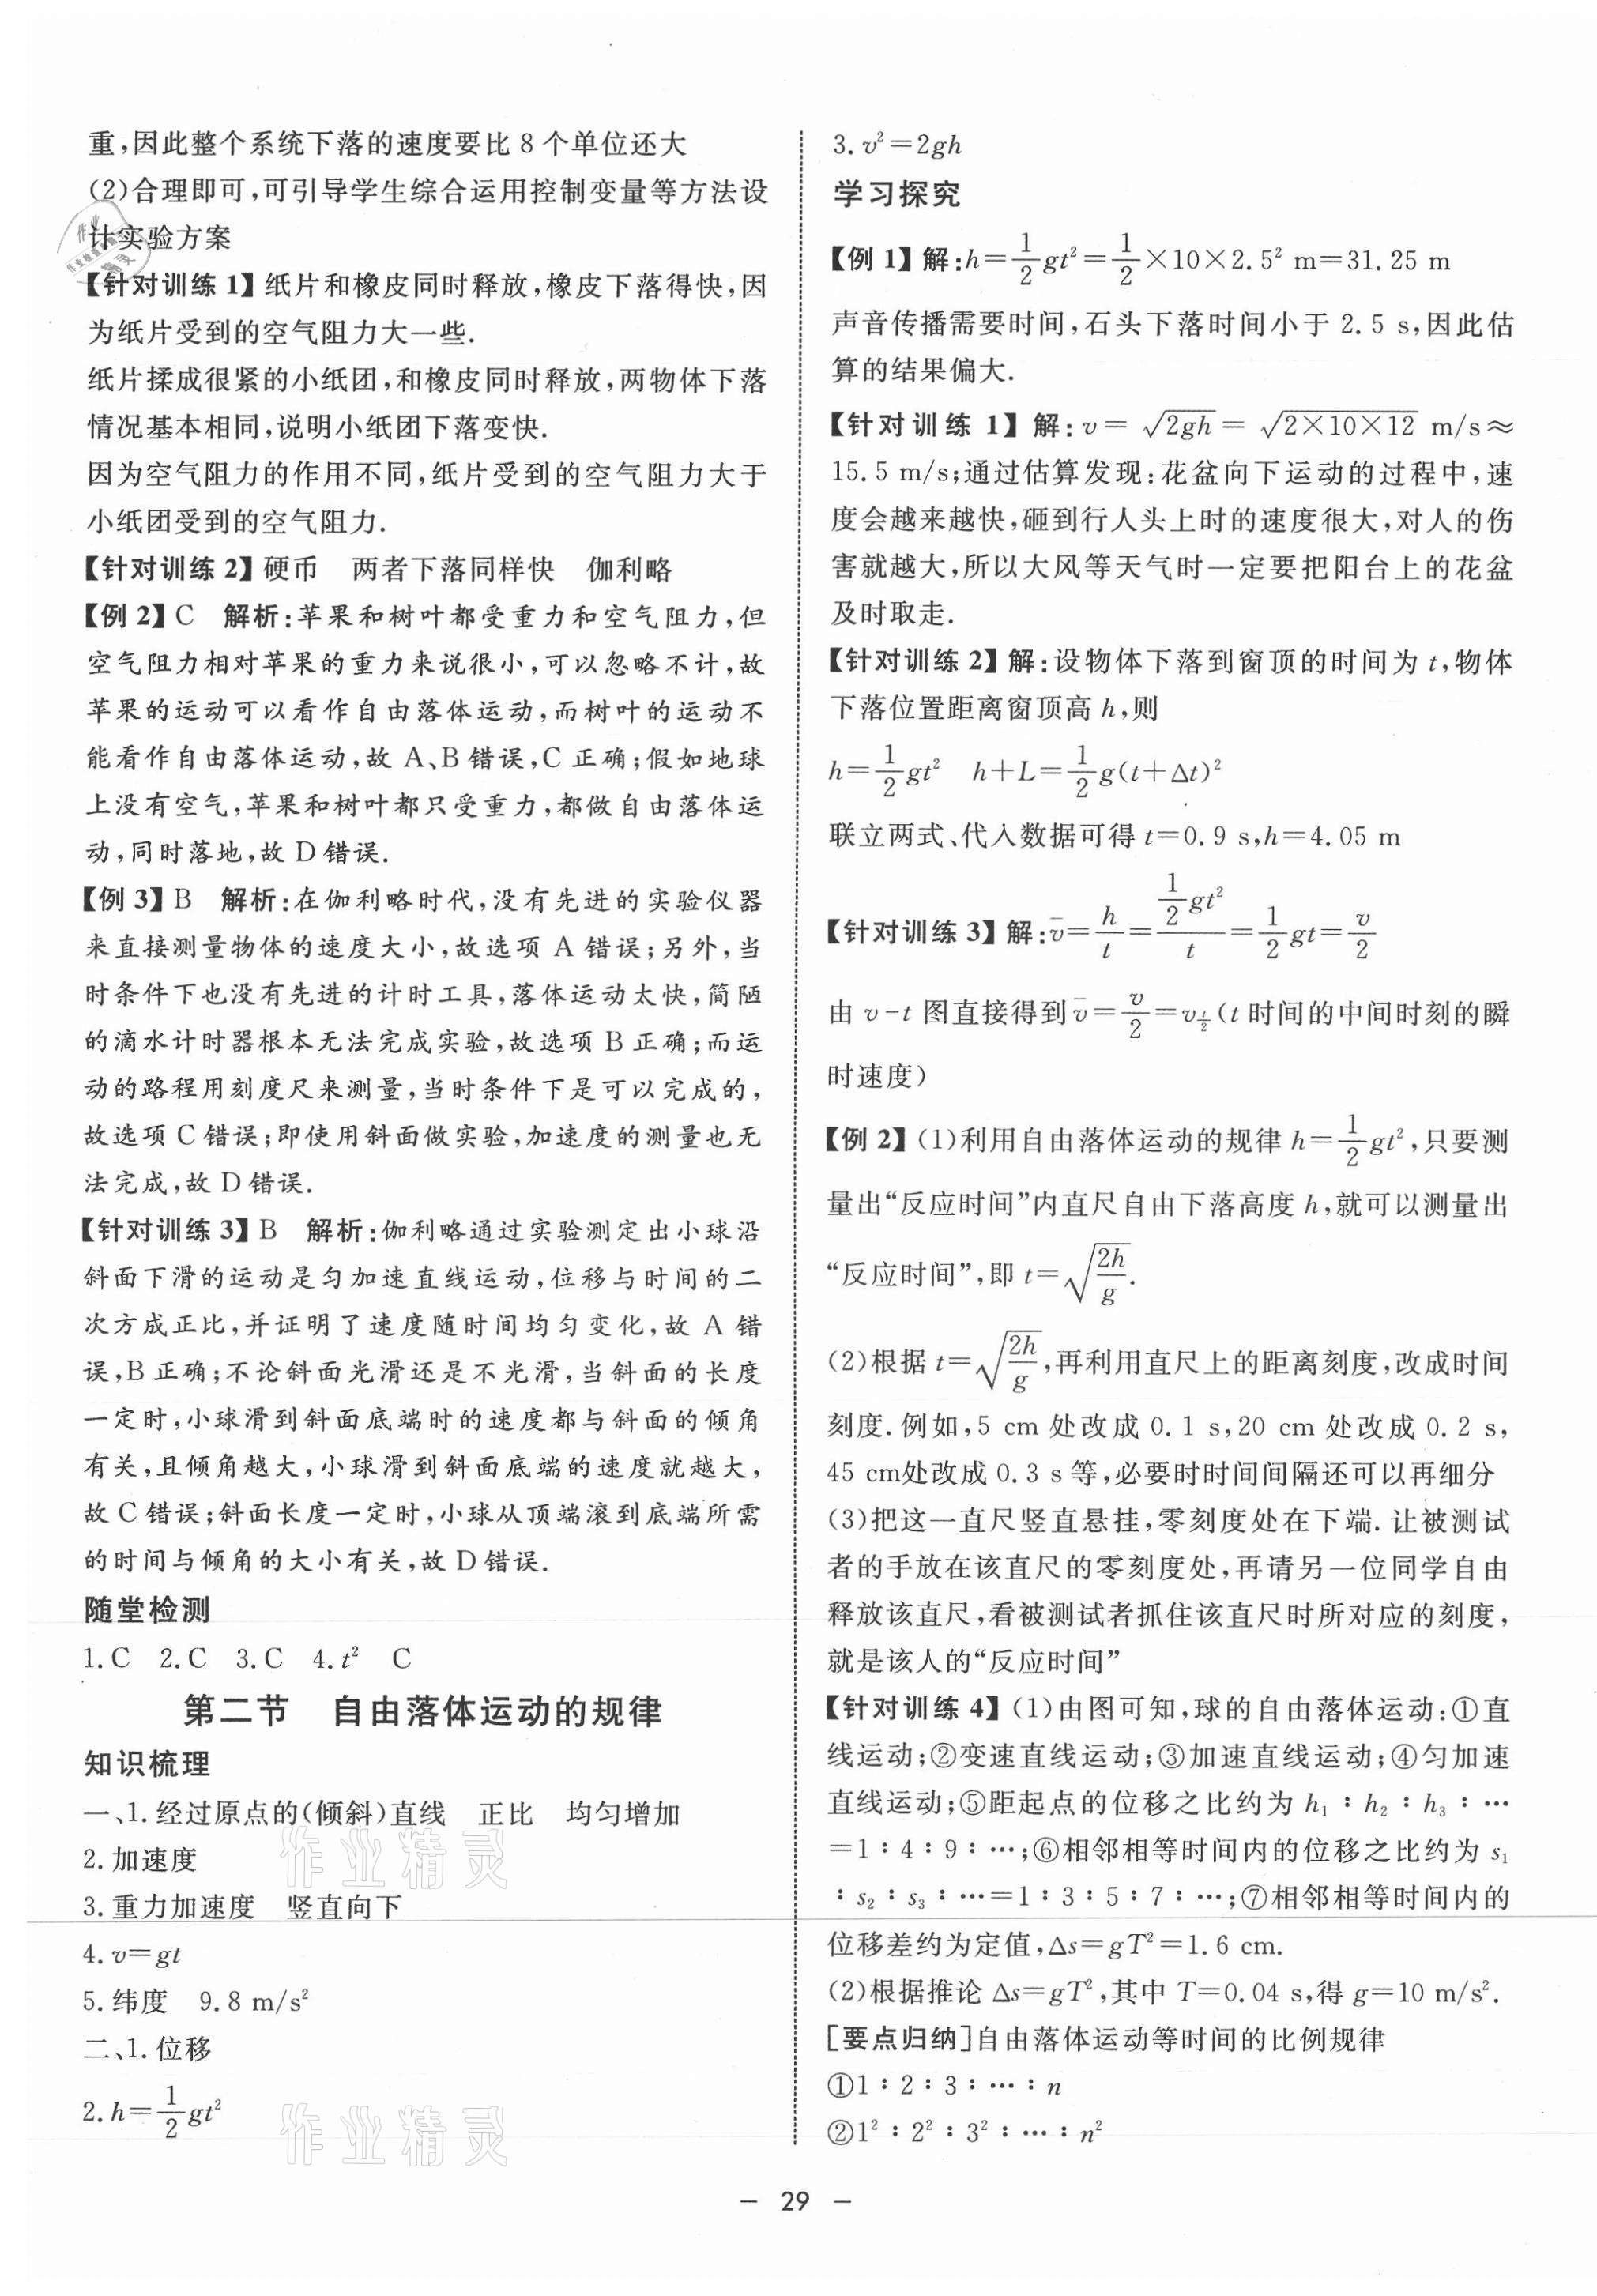 重,因此整个系统下落的速度要比 8 个单位还大
(2)合理即可,可引导学生综合运用控制变量等方法设
计实验方案
【针对训练 1】纸片和橡皮同时释放,橡皮下落得快,因
为纸片受到的空气阻力大一些.
纸片揉成很紧的小纸团,和橡皮同时释放,两物体下落
情况基本相同,说明小纸团下落变快.
因为空气阻力的作用不同,纸片受到的空气阻力大于
小纸团受到的空气阻力.
【针对训练 2】硬币 两者下落同样快 伽利略
【例 2】C 解析:苹果和树叶都受重力和空气阻力,但
空气阻力相对苹果的重力来说很小,可以忽略不计,故
苹果的运动可以看作自由落体运动,而树叶的运动不
能看作自由落体运动,故 A、B 错误,C 正确;假如地球
上没有空气,苹果和树叶都只受重力,都做自由落体运
动,同时落地,故 D 错误.
【例 3】B 解析:在伽利略时代,没有先进的实验仪器
来直接测量物体的速度大小,故选项 A 错误;另外,当
时条件下也没有先进的计时工具,落体运动太快,简陋
的滴水计时器根本无法完成实验,故选项 B 正确;而运
动的路程用刻度尺来测量,当时条件下是可以完成的,
故选项 C 错误;即使用斜面做实验,加速度的测量也无
法完成,故 D 错误.
【针对训练 3】B 解析:伽利略通过实验测定出小球沿
斜面下滑的运动是匀加速直线运动,位移与时间的二
次方成正比,并证明了速度随时间均匀变化,故 A 错
误,B 正确;不论斜面光滑还是不光滑,当斜面的长度
一定时,小球滑到斜面底端时的速度都与斜面的倾角
有关,且倾角越大,小球滑到斜面底端的速度就越大,
故 C 错误;斜面长度一定时,小球从顶端滚到底端所需
的时间与倾角的大小有关,故 D 错误.
随堂检测
1.C 2.C 3.C 4.t² C
第二节 自由落体运动的规律
知识梳理
一、1.经过原点的(倾斜)直线 正比 均匀增加
2.加速度
3.重力加速度 竖直向下
4.v=gt
5.纬度 9.8 m/s²
二、1.位移
2.h=1/2gt²
3.v²=2gh
学习探究
【例 1】解:h=1/2gt²=1/2×10×2.5² m=31.25 m
声音传播需要时间,石头下落时间小于 2.5 s,因此估
算的结果偏大.
【针对训练 1】解:v=√(2gh)=√(2×10×12) m/s≈
15.5 m/s;通过估算发现:花盆向下运动的过程中,速
度会越来越快,砸到行人头上时的速度很大,对人的伤
害就越大,所以大风等天气时一定要把阳台上的花盆
及时取走.
【针对训练 2】解:设物体下落到窗顶的时间为 t,物体
下落位置距离窗顶高 h,则
h=1/2gt² h+L=1/2g(t+Δt)²
联立两式、代入数据可得 t=0.9 s,h=4.05 m
【针对训练 3】解:v̄=h/t=(1/2gt²)/t=1/2gt=v/2
由 v-t 图直接得到 v̄=v/2=v_(t/2)(t 时间的中间时刻的瞬
时速度)
【例 2】(1)利用自由落体运动的规律 h=1/2gt²,只要测
量出“反应时间”内直尺自由下落高度 h,就可以测量出
“反应时间”,即 t=√(2h/g).
(2)根据 t=√(2h/g),再利用直尺上的距离刻度,改成时间
刻度.例如,5 cm 处改成 0.1 s,20 cm 处改成 0.2 s,
45 cm处改成 0.3 s 等,必要时时间间隔还可以再细分
(3)把这一直尺竖直悬挂,零刻度处在下端.让被测试
者的手放在该直尺的零刻度处,再请另一位同学自由
释放该直尺,看被测试者抓住该直尺时所对应的刻度,
就是该人的“反应时间”
【针对训练 4】(1)由图可知,球的自由落体运动:①直
线运动;②变速直线运动;③加速直线运动;④匀加速
直线运动;⑤距起点的位移之比约为 h₁∶h₂∶h₃∶…
=1∶4∶9∶…;⑥相邻相等时间内的位移之比约为 s₁
∶s₂∶s₃∶…=1∶3∶5∶7∶…;⑦相邻相等时间内的
位移差约为定值,Δs=gT²=1.6 cm.
(2)根据推论 Δs=gT²,其中 T=0.04 s,得 g=10 m/s².
[要点归纳]自由落体运动等时间的比例规律
①1∶2∶3∶…∶n
②1²∶2²∶3²∶…∶n²
— 29 —
作业精灵
作业精灵